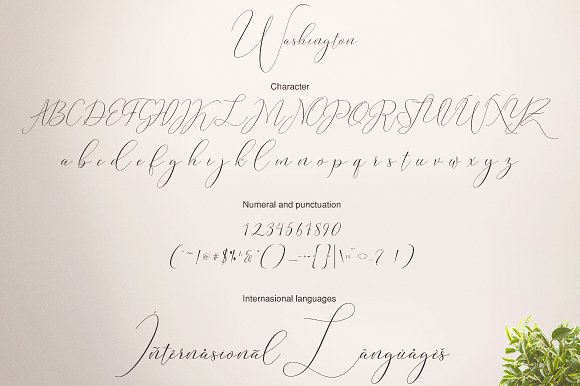 Washington
Character
ABCDEFGHIJKLMNOPQRSTUVXYZ
abcdefghijklmnopqrstuvwxyz
Numeral and punctuation
1234567890
Internasional languages
Íñtërnâsıonãl Lângüàgèš